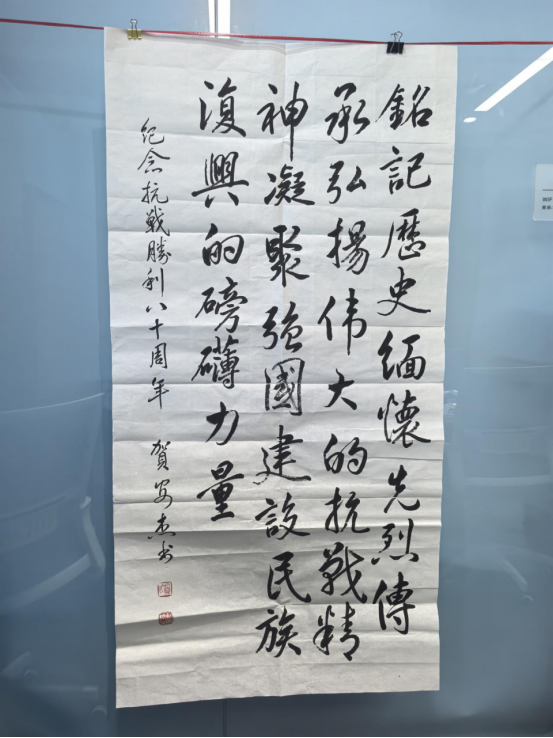 銘記歷史缅懷先烈傳
承弘揚伟大的抗戰精
神凝聚强國建設民族
復興的磅礴力量
纪念抗戰勝利八十周年 賀安杰书